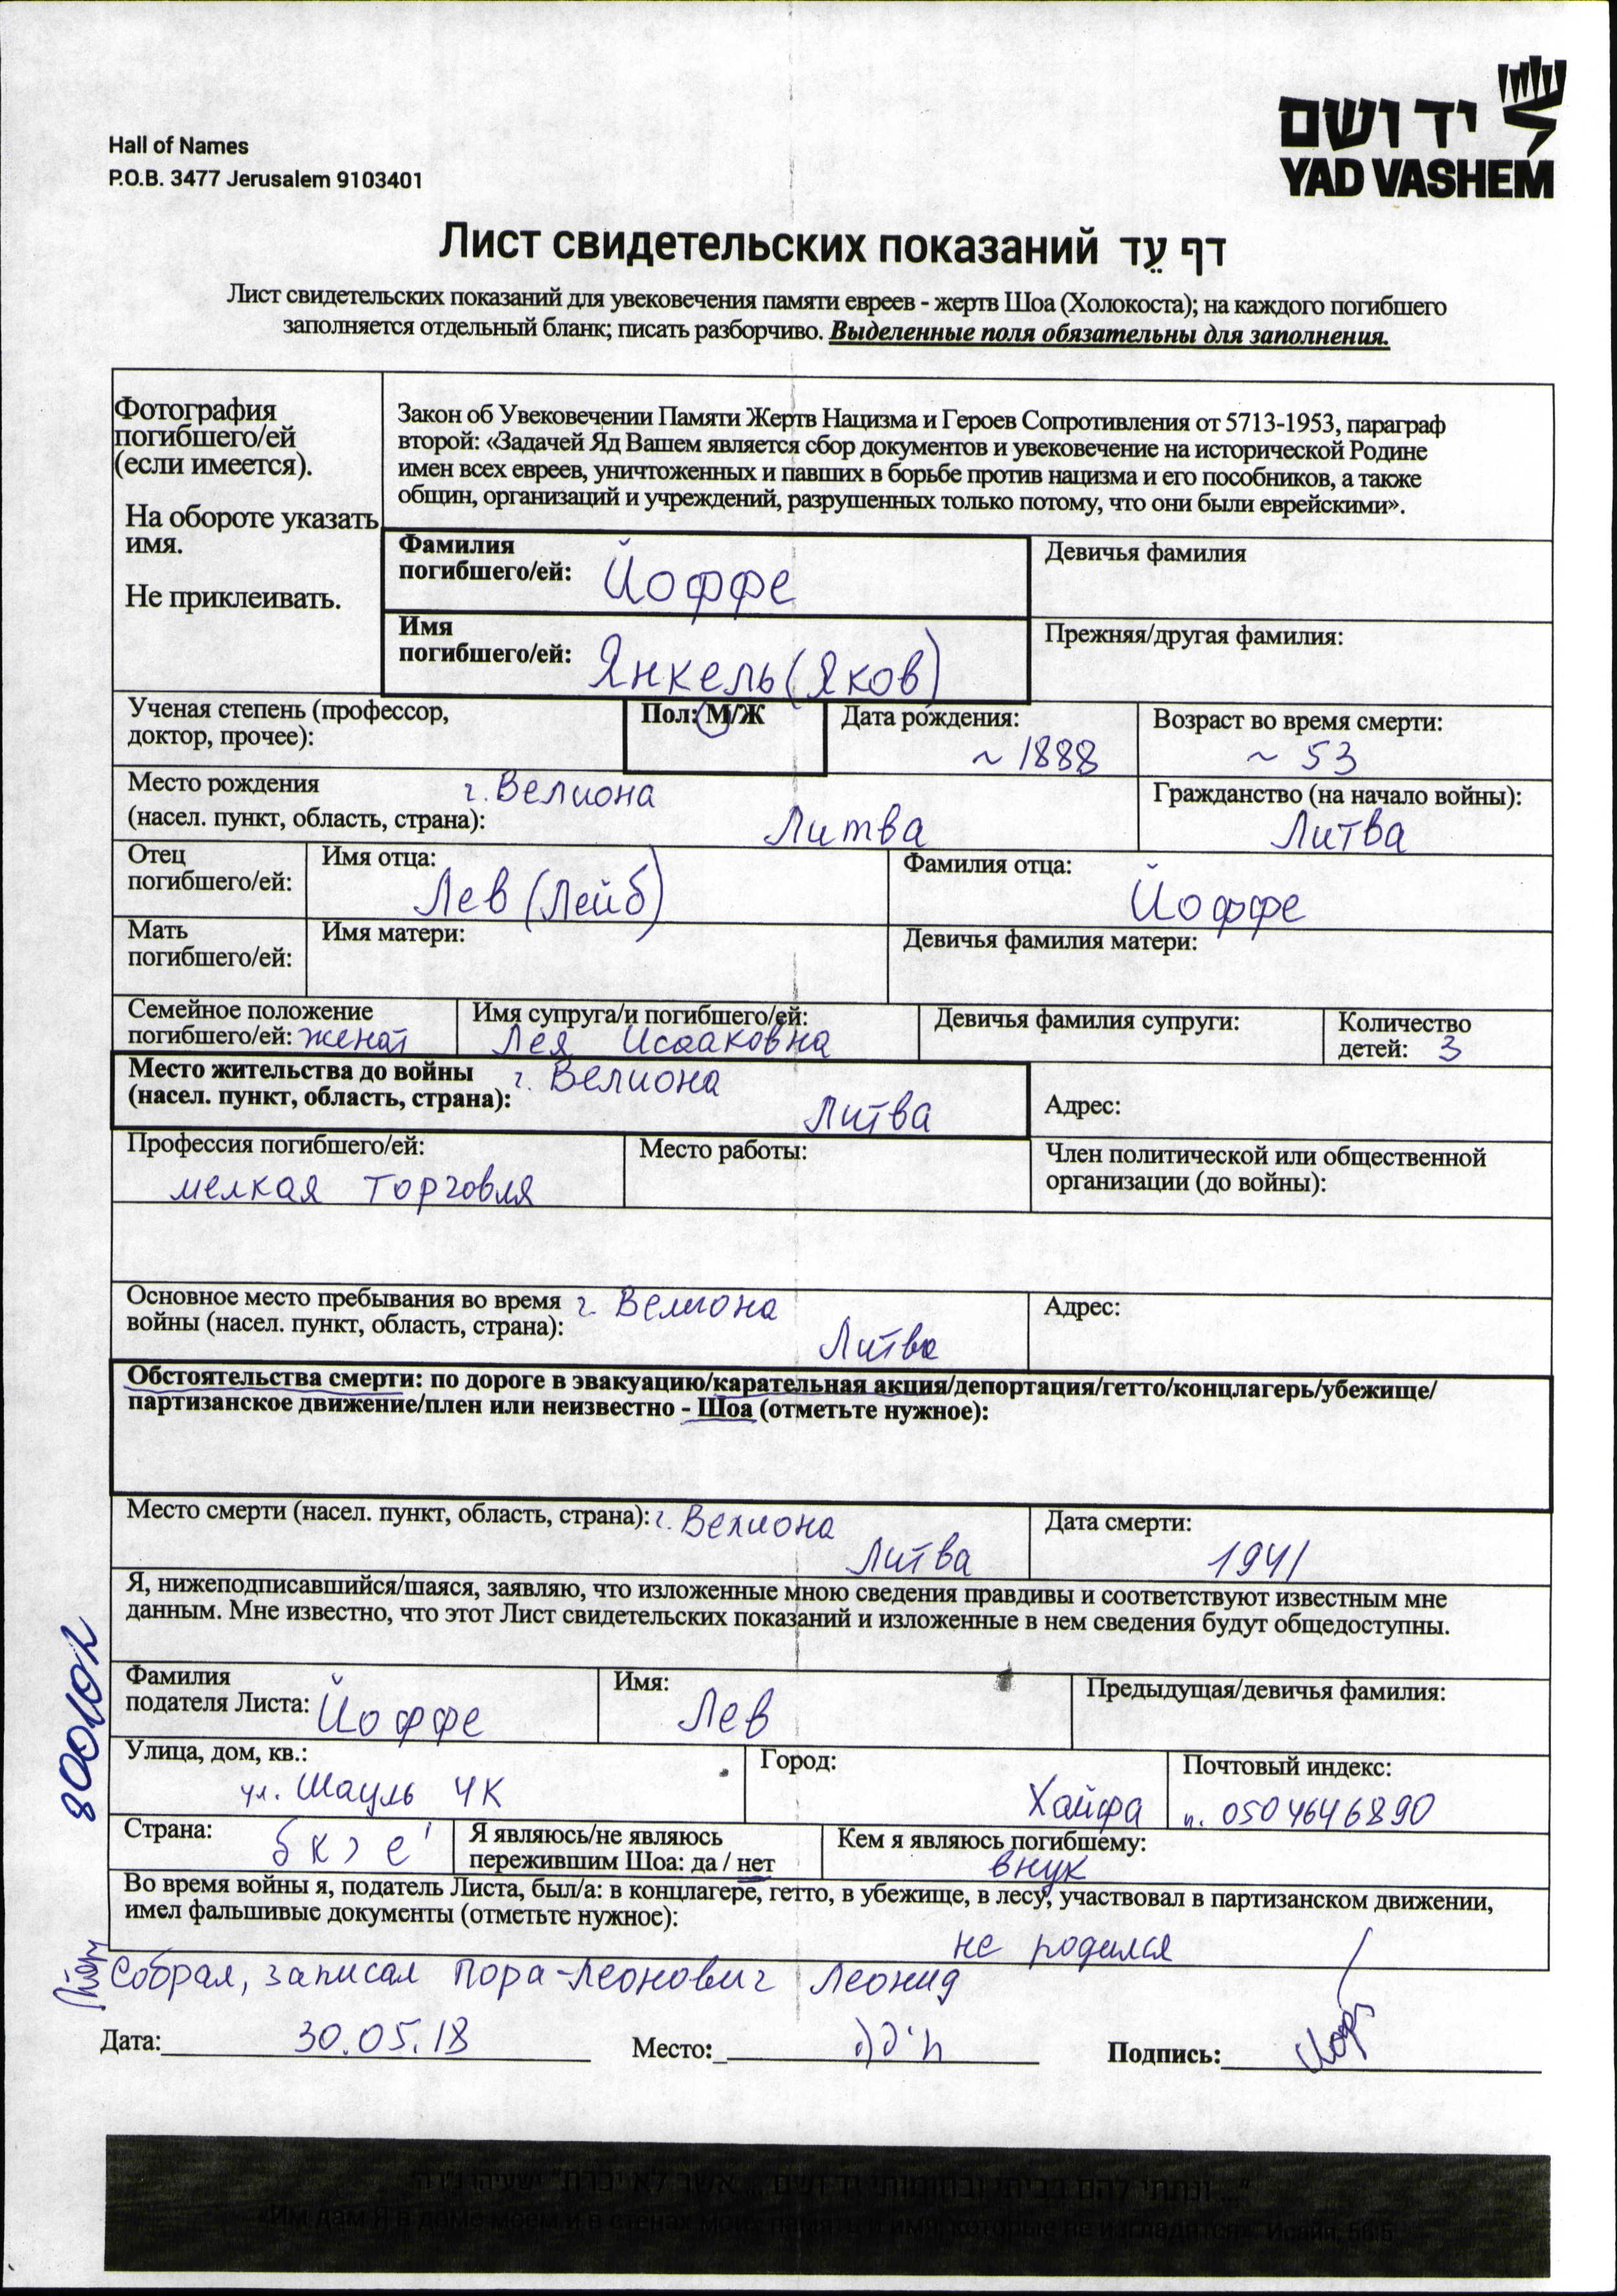 Hall of Names
P.O.B. 3477 Jerusalem 9103401
יד ושם
YAD VASHEM
Лист свидетельских показаний דף עֵד
Лист свидетельских показаний для увековечения памяти евреев - жертв Шоа (Холокоста); на каждого погибшего
заполняется отдельный бланк; писать разборчиво. Выделенные поля обязательны для заполнения.
Фотография
погибшего/ей
(если имеется).
На обороте указать
имя.
Не приклеивать.
Закон об Увековечении Памяти Жертв Нацизма и Героев Сопротивления от 5713-1953, параграф
второй: «Задачей Яд Вашем является сбор документов и увековечение на исторической Родине
имен всех евреев, уничтоженных и павших в борьбе против нацизма и его пособников, а также
общин, организаций и учреждений, разрушенных только потому, что они были еврейскими».
Фамилия
погибшего/ей: Йоффе
Девичья фамилия
Имя
погибшего/ей: Янкель (Яков)
Прежняя/другая фамилия:
Ученая степень (профессор,
доктор, прочее):
Пол: М/Ж
Дата рождения:
~ 1888
Возраст во время смерти:
~ 53
Место рождения г. Велиона
(насел. пункт, область, страна): Литва
Гражданство (на начало войны):
Литва
Отец
погибшего/ей:
Имя отца:
Лев (Лейб)
Фамилия отца:
Йоффе
Мать
погибшего/ей:
Имя матери:
Девичья фамилия матери:
Семейное положение
погибшего/ей: женат
Имя супруга/и погибшего/ей:
Лея Исааковна
Девичья фамилия супруги:
Количество
детей: 3
Место жительства до войны г. Велиона
(насел. пункт, область, страна): Литва
Адрес:
Профессия погибшего/ей:
мелкая торговля
Место работы:
Член политической или общественной
организации (до войны):
Основное место пребывания во время г. Велиона
войны (насел. пункт, область, страна): Литва
Адрес:
Обстоятельства смерти: по дороге в эвакуацию/карательная акция/депортация/гетто/концлагерь/убежище/
партизанское движение/плен или неизвестно - Шоа (отметьте нужное):
Место смерти (насел. пункт, область, страна): г. Велиона
Литва
Дата смерти:
1941
Я, нижеподписавшийся/шаяся, заявляю, что изложенные мною сведения правдивы и соответствуют известным мне
данным. Мне известно, что этот Лист свидетельских показаний и изложенные в нем сведения будут общедоступны.
800102
Фамилия
подателя Листа: Йоффе
Имя:
Лев
Предыдущая/девичья фамилия:
Улица, дом, кв.:
ул. Шауль 4К
Город:
Хайфа
Почтовый индекс:
п. 0504646890
Страна:
Я являюсь/не являюсь
пережившим Шоа: да / нет
Кем я являюсь погибшему:
внук
Во время войны я, податель Листа, был/а: в концлагере, гетто, в убежище, в лесу, участвовал в партизанском движении,
имел фальшивые документы (отметьте нужное):
не родился
Собрал, записал Пора-Леонович Леонид
Дата: 30.05.18
Место: חיפה
Подпись: